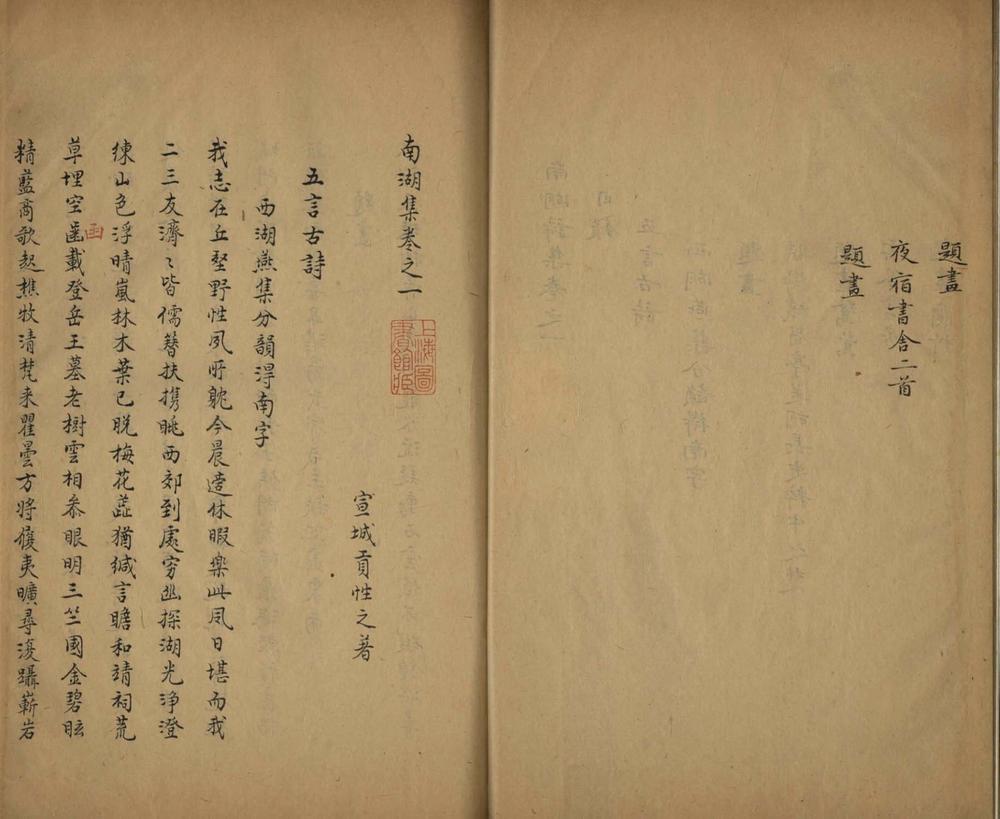 題畫
夜宿書舍二首
題畫
南湖集卷之一
上海圖書館藏
宣城貢性之著
五言古詩
西湖燕集分韻得南字
我志在丘壑野性夙所躭今晨遼休暇樂此風日堪而我
二三友濟〻皆儒簪扶携眺西郊到處窮幽探湖光浄澄
練山色浮晴嵐林木葉已脱梅花蕋猶緘言瞻和靖祠荒
草埋空𠥱載登岳王墓老樹雲相叅眼明三竺國金碧眩
函
精藍商歌起樵牧清梵来瞿曇方將履夷曠尋復躡嶄岩